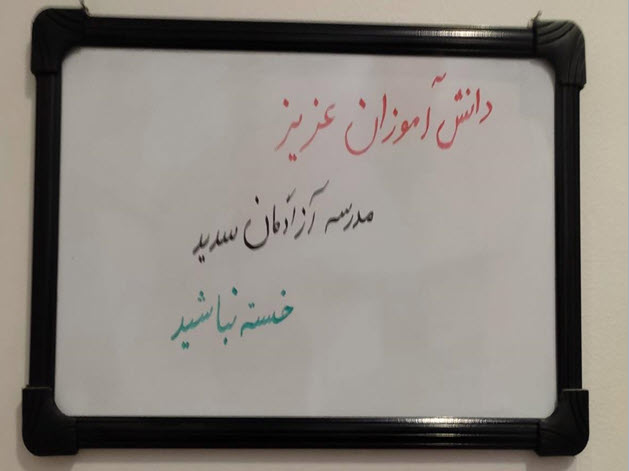 دانش آموزان عزیز
مدرسه آزادگان سدید
خسته نباشید